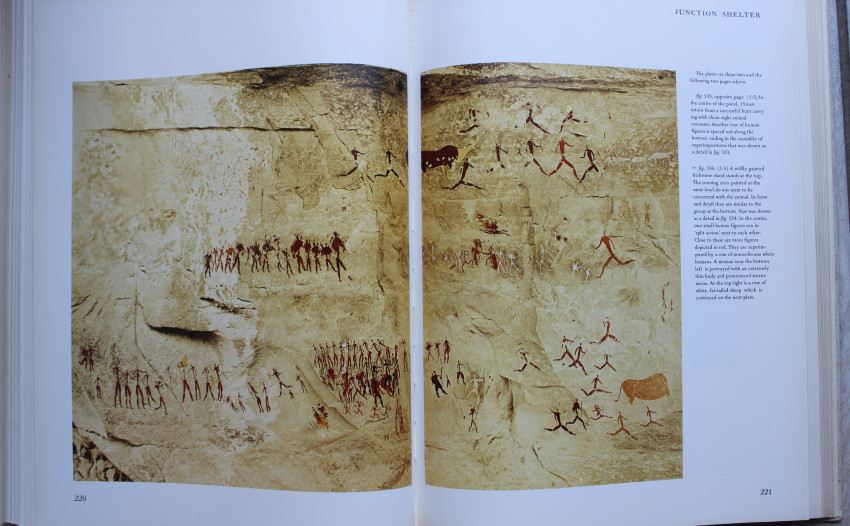 JUNCTION SHELTER
The plates on these two and the
following two pages adjoin.
fig. 535, opposite page: (1:5) In
the centre of the panel, 15 men
return from a successful hunt carry-
ing with them eight animal
carcasses. Another row of human
figures is spaced out along the
bottom ending in the assembly of
superimpositions that was shown as
a detail in fig. 533.
← fig. 536: (1:5) A stiffly painted
trichrome eland stands at the top.
The running men painted at the
same level do not seem to be
concerned with the animal. In form
and detail they are similar to the
group at the bottom that was shown
as a detail in fig. 534. In the centre,
two small human figures run in
'split action' next to each other.
Close to these are more figures
depicted in red. They are superim-
posed by a row of monochrome white
humans. A woman near the bottom
left is portrayed with an extremely
thin body and pronounced steato-
meria. At the top right is a row of
white, fat-tailed sheep which is
continued on the next plate.
220
221